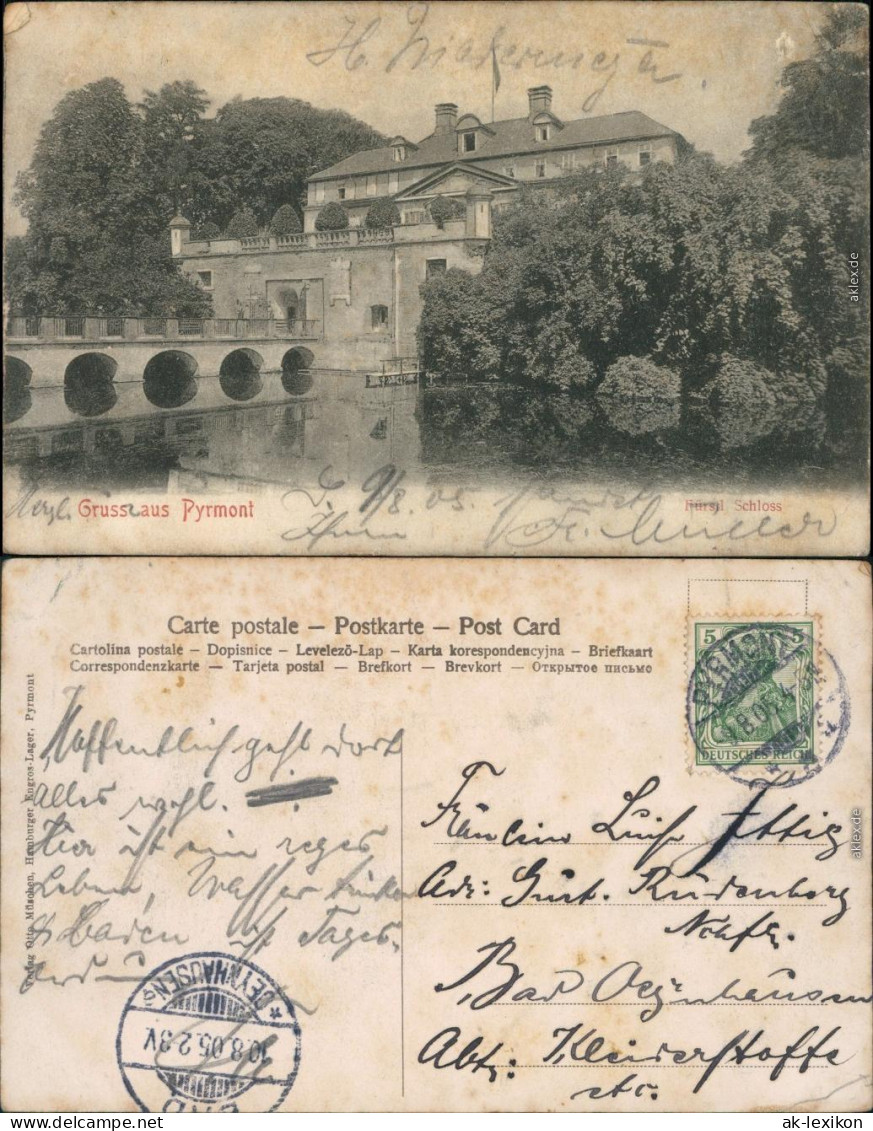 H.
Herzl. Gruss aus Pyrmont
Fürstl Schloss
d. 9/8. 05.
Ihnen Fr. Müller
akleix.de
Carte postale – Postkarte – Post Card
Cartolina postale – Dopisnice – Levelező-Lap – Karta korespondencyjna – Briefkaart
Correspondenzkarte – Tarjeta postal – Brefkort – Brevkort – Открытое письмо
Verlag Otto München, Hamburger Engros-Lager, Pyrmont
5 5
DEUTSCHES REICH
PYRMONT
9.8.05.
Hoffentlich geht dort
alles wohl.
Hier ist ein reges
Leben, Wasser trinken
& Baden ist Tages-
ordnung
BAD OEYNHAUSEN
10.8.05. 2-3V.
Fräulein Luise Ittig
Adr: Gust. Rudenberg
Nchfg.
Bad Oeynhausen
Abt: Kleiderstoffe
etc.
aklex.de
www.ak-lexikon.de
ak-lexikon